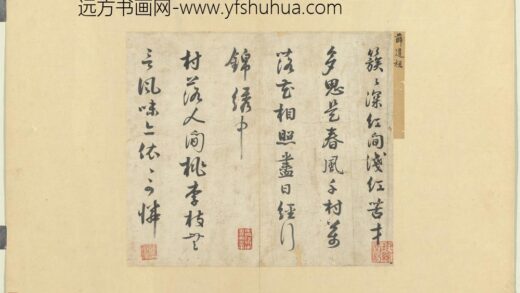 远方书画网-www.yfshuhua.com
薛道祖
簇〻深红间浅红苦才
多思是春风千村万
落花相照尽日经行
锦绣中
村落人间桃李枝无
言风味亦依〻可怜